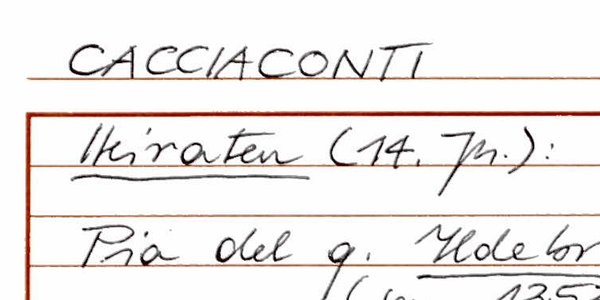 CACCIACONTI
Heiraten (14. Jh.):
Pia del q. Ildebr
(m. 1352